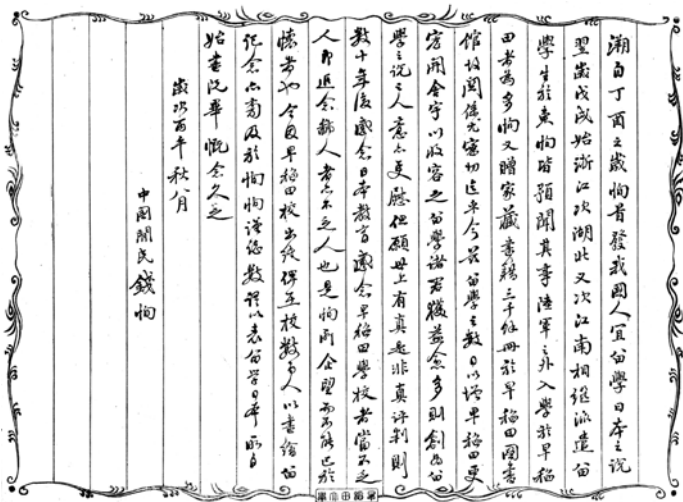 溯自丁酉之歲恂首發我國人宜留學日本之說
翌歲戊戌始浙江次湖北又次江南相繼派遣留
學生於東恂皆預聞其事陸軍之外入學於早稻
田者為多恂又贈家藏書籍三千餘冊於早稻田圖書
館故關係尤密切迄乎今茲留學之數日以增早稻田更
宏開舍宇以收容之留學諸君獲益愈多則創為留
學之說之人意亦更慰但願世上有真是非真評判則
數十年後感念日本教育感念早稻田學校者當不乏
人即追念鄙人者亦不乏人也是恂所企望而不能已於
懷者也今因早稻田校出紙俾在校數百人以書繪留
紀念亦索及於恂恂謹綴數語以表留學日本所自
始書既畢慨念久之
歲次丙午秋八月
中國閒民錢恂
早稻田大學